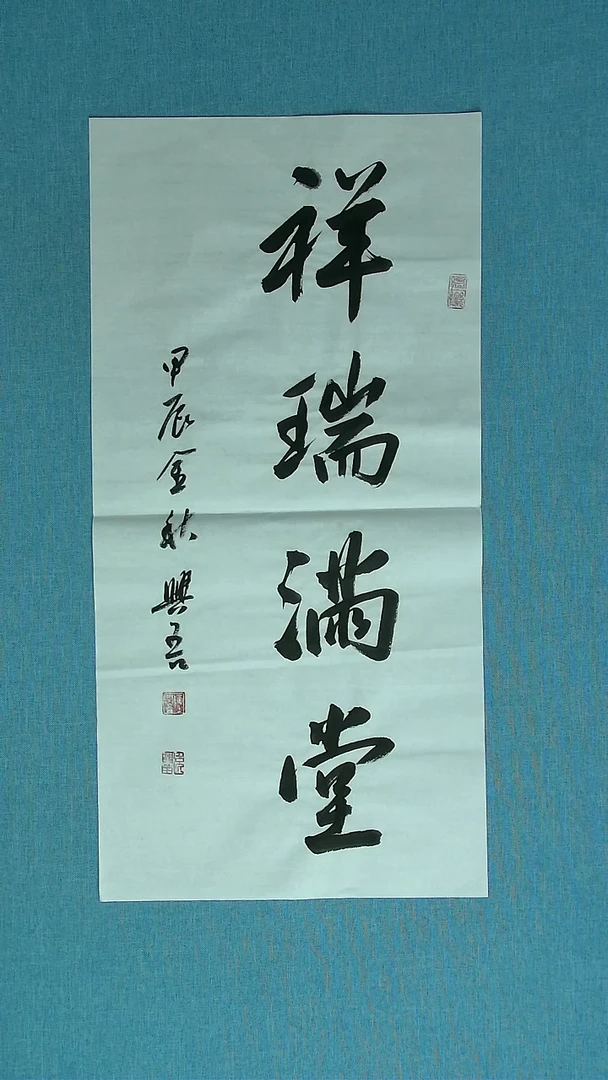 祥瑞满堂
甲辰金秋興吾